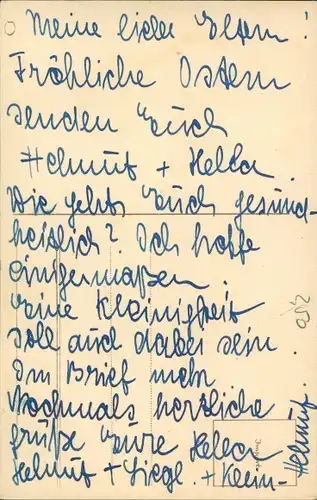 Meine lieben Eltern!
Fröhliche Ostern
senden Euch
Helmut + Hella.
Wie gehts Euch gesund-
heitlich? Ich hoffe
einigermaßen.
Eine Kleinigkeit
soll auch dabei sein
Im Brief mehr
Nochmals herzliche
Grüße Eure Hella
Helmut + Liesel. + Klein-
Helmut.